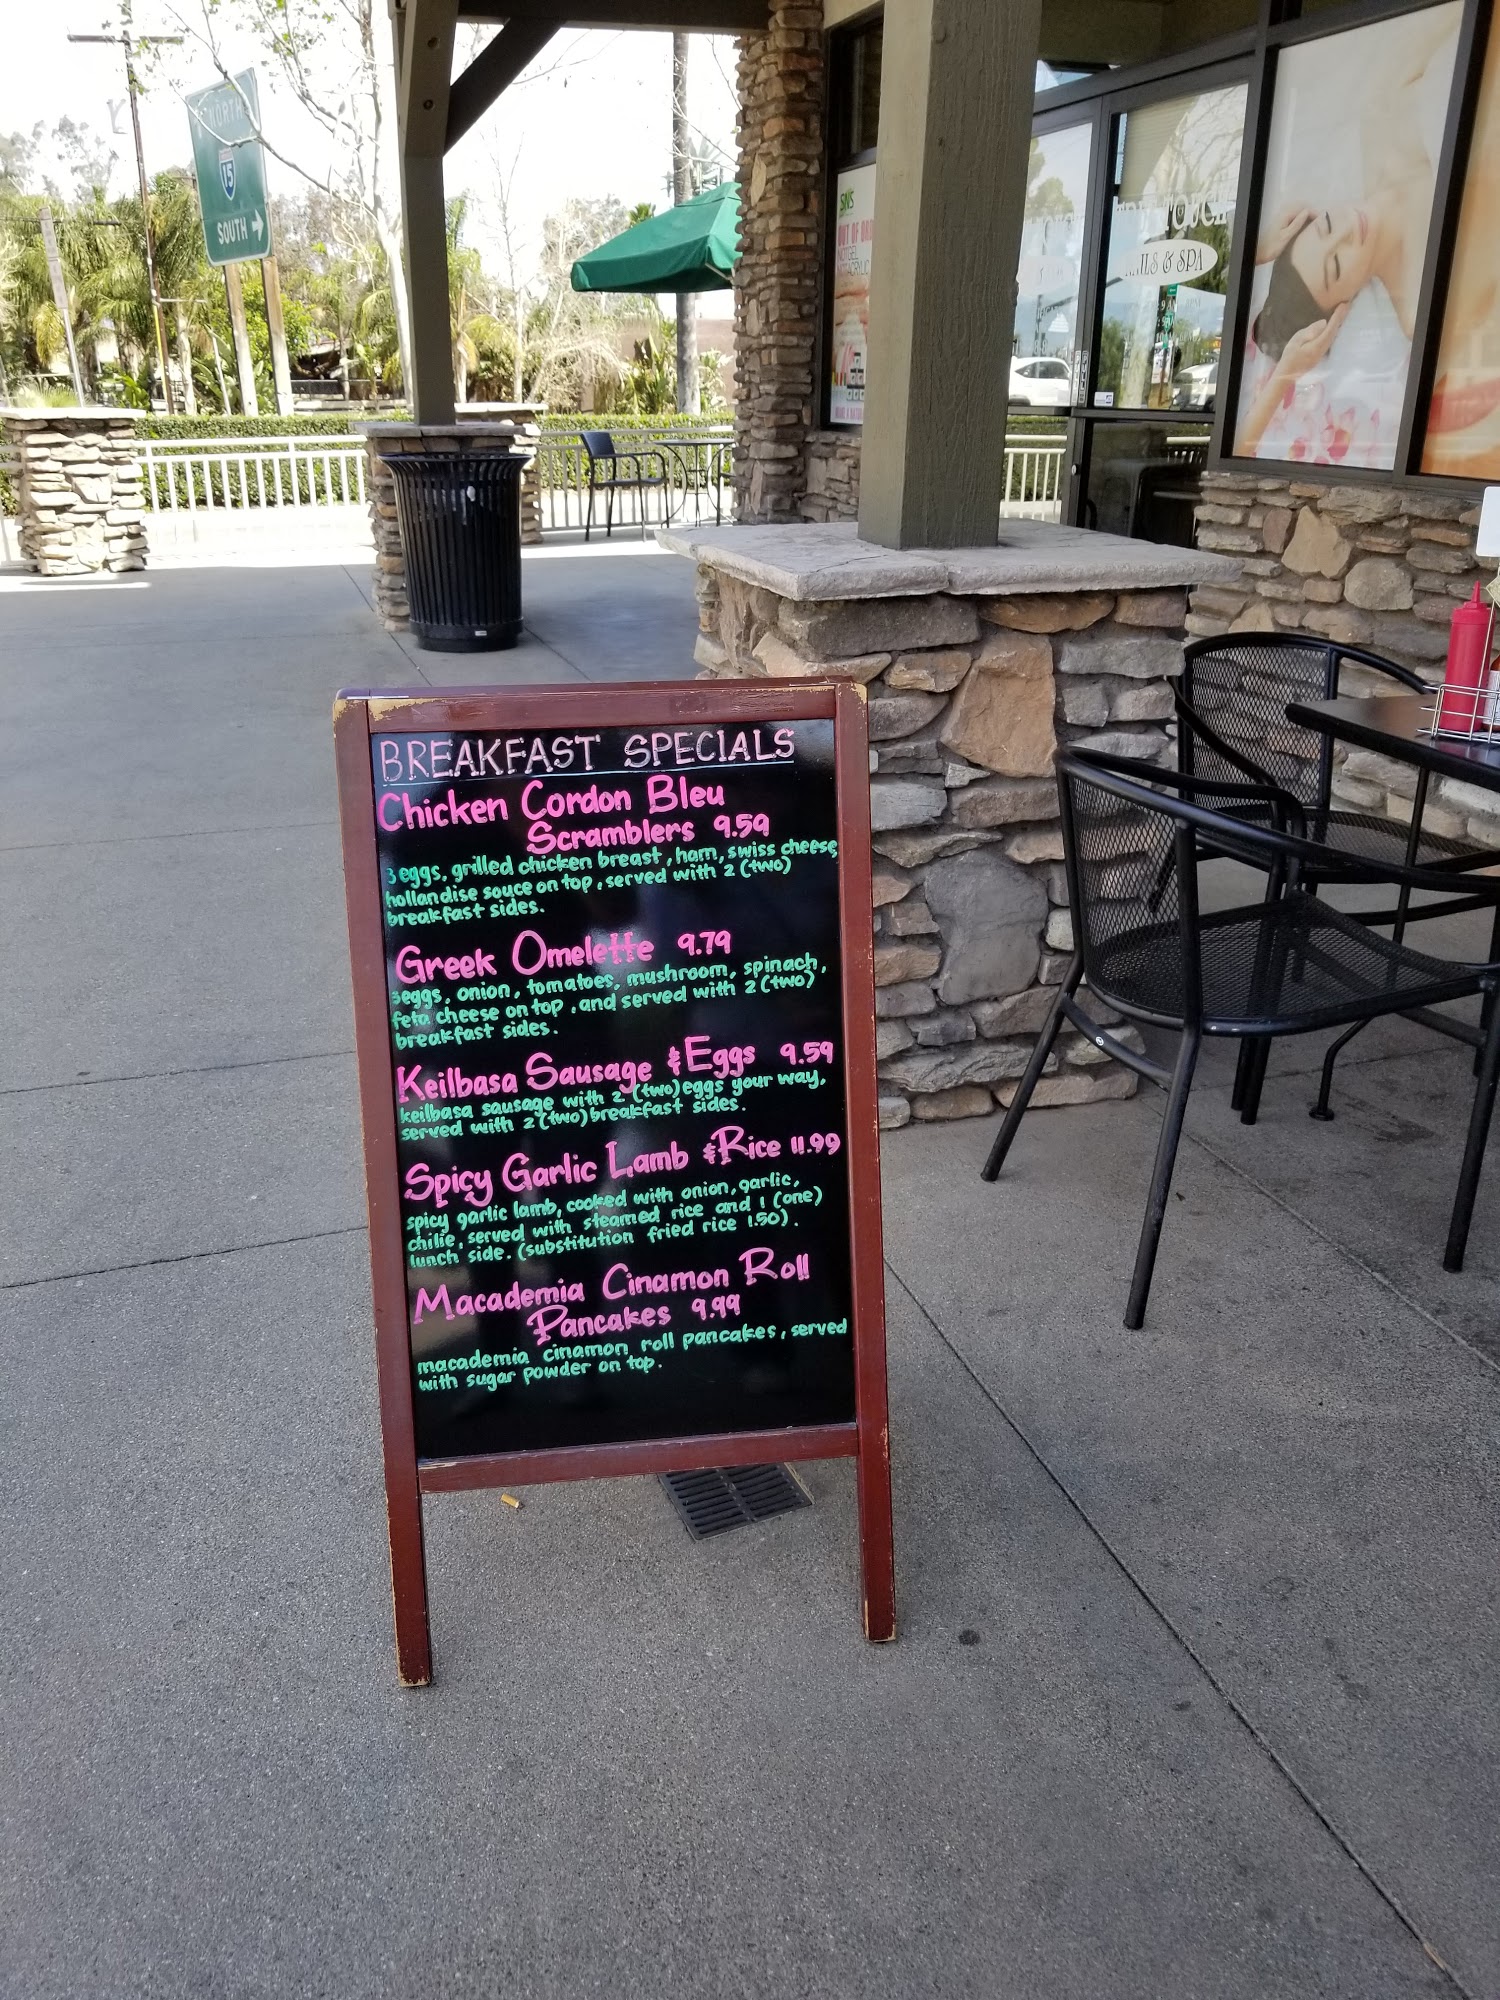 NORTH
15
SOUTH
SNS
NAILS & SPA
BREAKFAST SPECIALS
Chicken Cordon Bleu
Scramblers 9.59
3 eggs, grilled chicken breast, ham, swiss cheese,
hollandise souce on top, served with 2 (two)
breakfast sides.
Greek Omelette 9.79
3eggs, onion, tomatoes, mushroom, spinach,
feta cheese on top, and served with 2 (two)
breakfast sides.
Keilbasa Sausage & Eggs 9.59
keilbasa sausage with 2 (two) eggs your way,
served with 2 (two) breakfast sides.
Spicy Garlic Lamb & Rice 11.99
spicy garlic lamb, cooked with onion, garlic,
chilie, served with steamed rice and 1 (one)
lunch side. (substitution fried rice 1.50).
Macademia Cinamon Roll
Pancakes 9.99
macademia cinamon roll pancakes, served
with sugar powder on top.